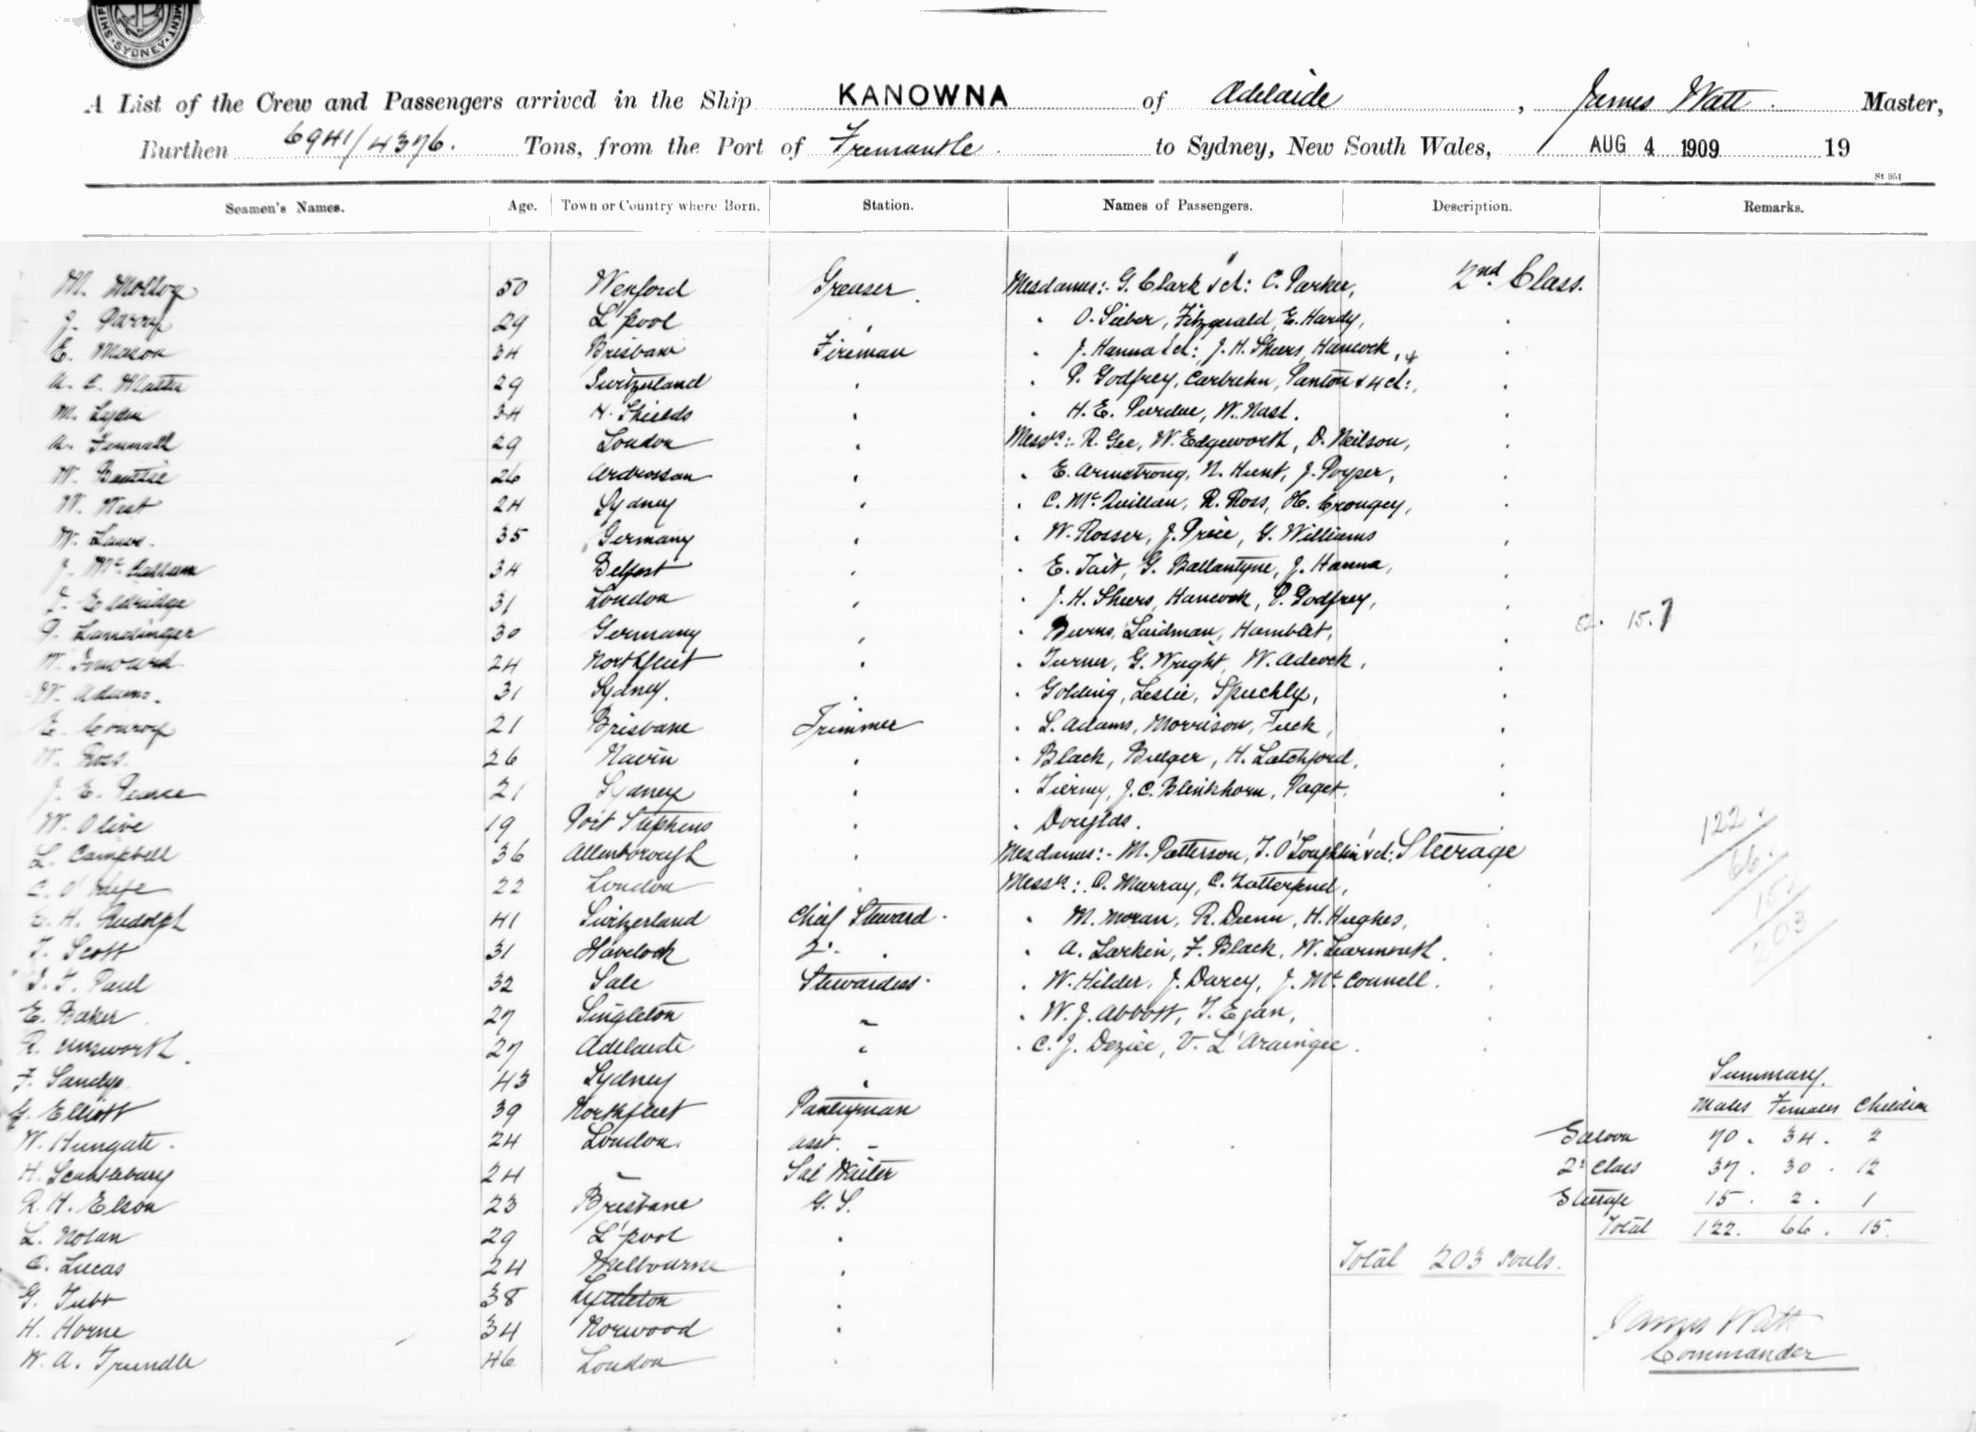 SYDNEY
A List of the Crew and Passengers arrived in the Ship KANOWNA of Adelaide, James Watt Master,
Burthen 6941/4376. Tons, from the Port of Fremantle to Sydney, New South Wales, AUG 4 1909 19
Seamen's Names. Age. Town or Country where Born. Station. Names of Passengers. Description. Remarks.
M. Molloy 50 Wexford Greaser Mesdames:- G. Clark & ch: C. Parker, 2nd Class.
J. Parry 29 L'pool " O. Sieber, Fitzgerald, E. Hardy,
E. Mason 34 Brisbane Fireman " J. Hanna & ch: J. H. Sheers, Hancock,
29 Switzerland " P. Godfrey, Carbrehn, Panton & 4 ch:
M. Lydon 34 N. Shields " H. E. Purdue, W. Nast.
A. 29 London Messrs:- R. Gee, W. Edgeworth, D. Neilson,
W. 26 Ardrossan " E. Armstrong, N. Hunt, J. Poyser,
W. West 24 Sydney " C. McQuillan, R. Ross, H. Crougey,
W. 35 Germany " W. Rosser, J. Price, G. Williams
J. McCallum 34 Belfast " E. Tait, G. Ballantyne, J. Hanna,
J. Eldridge 31 London " J. H. Sheers, Hancock, P. Godfrey,
P. Landinger 30 Germany " Burns, Laidman, Hamblet,
W. 24 Northfleet " Turner, G. Wright, W. Adcock,
W. Adams. 31 Sydney. " Golding, Leslie, Spechly,
E. Conroy 21 Brisbane Trimmer " L. Adams, Morrison, Tuck,
W. Ross. 26 Nairn " Black, Bulger, H. Latchford,
J. E. Pearce 21 Sydney " Tierney, J. C. Blinkhorn, Paget.
W. Olive 19 Port Stephens " Douglas.
L. Campbell 36 Allenborough Mesdames:- M. Patterson, T. O'Loughlin & ch: Steerage
C. O'Keefe 22 London Messrs: C. Murray, C. Zotterfend,
E. H. Rudolph 41 Switzerland Chief Steward. " M. Moran, R. Dunn, H. Hughes,
T. Scott 31 Havelock 2. " " A. Larkin, F. Black, W. Learmonth.
J. F. Paul 32 Sale Stewardess. " W. Hilder, J. Darcy, J. McConnell.
E. Baker 27 Singleton " " W. J. Abbott, T. Egan,
R. Unsworth. 27 Adelaide " " C. J. Dezice, V. L'Araingee.
F. Sandys 43 Sydney "
G. Elliott 39 Northfleet Pantryman
W. Hungate. 24 London. asst. "
H. 24 " Sal Waiter
R. H. Elson 23 Brisbane G. S.
L. Nolan 29 L'pool "
C. Lucas 24 Melbourne "
G. Tubb 38 Lyttleton "
H. Horne 34 Norwood "
W. A. Trundle 46 London "
15.
122.
66.
15.
203
Summary.
Males Females Children
Saloon 70. 34. 2
2d Class 37. 30. 12
Steerage 15. 2. 1
Total 122. 66. 15.
Total 203 souls.
James Watt
Commander